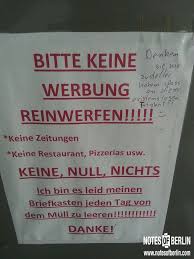 BITTE KEINE
WERBUNG
REINWERFEN!!!!!!
*Keine Zeitungen
*Keine Restaurant, Pizzerias usw.
KEINE, NULL, NICHTS
Ich bin es leid meinen
Briefkasten jeden Tag von
dem Müll zu leeren!!!!!!!!!!!!
DANKE!
Denken
sie
NOTES OF BERLIN
www.notesofberlin.com